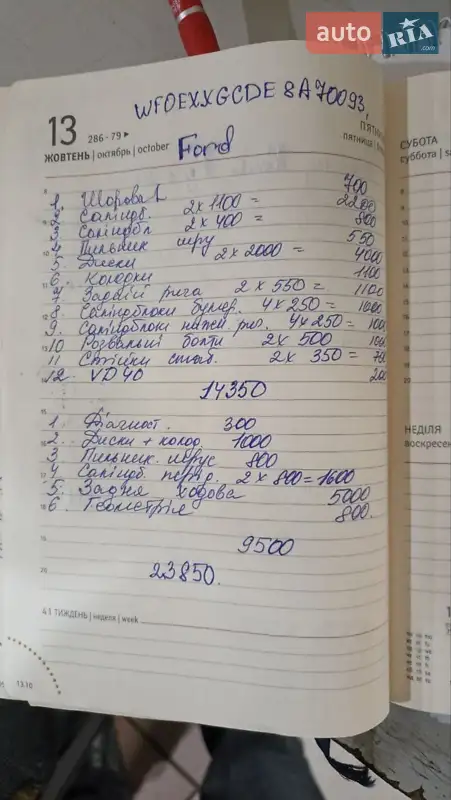 auto RIA.com
WFOEXXGCDE8A70093,
13 286-79
ЖОВТЕНЬ | октябрь | october
Ford
П'ЯТНИ
пятница
СУБОТА
суббота | sa
1. Шарова 1 700
2. Салиндб. 2 x 1100 = 2200
3. Салиндбл 2 x 400 = 800
4. Пильник шру 550
5. Диски 2 x 2000 = 4000
6. Колодки 1100
7. Задній рига 2 x 550 = 1100
8. Салиндблоки бумер. 4 x 250 = 1000
9. Салиндблоки нижей ры. 4 x 250 = 100
10 Розвальні болти 2 x 500 100
11 Стійки стаб. 2 x 350 = 70
12. VD40 200
14350
1. Діагност. 300
2. Диски + колод 1000
3 Пильник. шрус 800
4 Салиндб. перед. 2 x 800 = 1600
5. Задня ходова 5000
6. Геометрія 800.
9500
23850.
НЕДІЛЯ
воскресе
41 ТИЖДЕНЬ | неделя | week
13.10